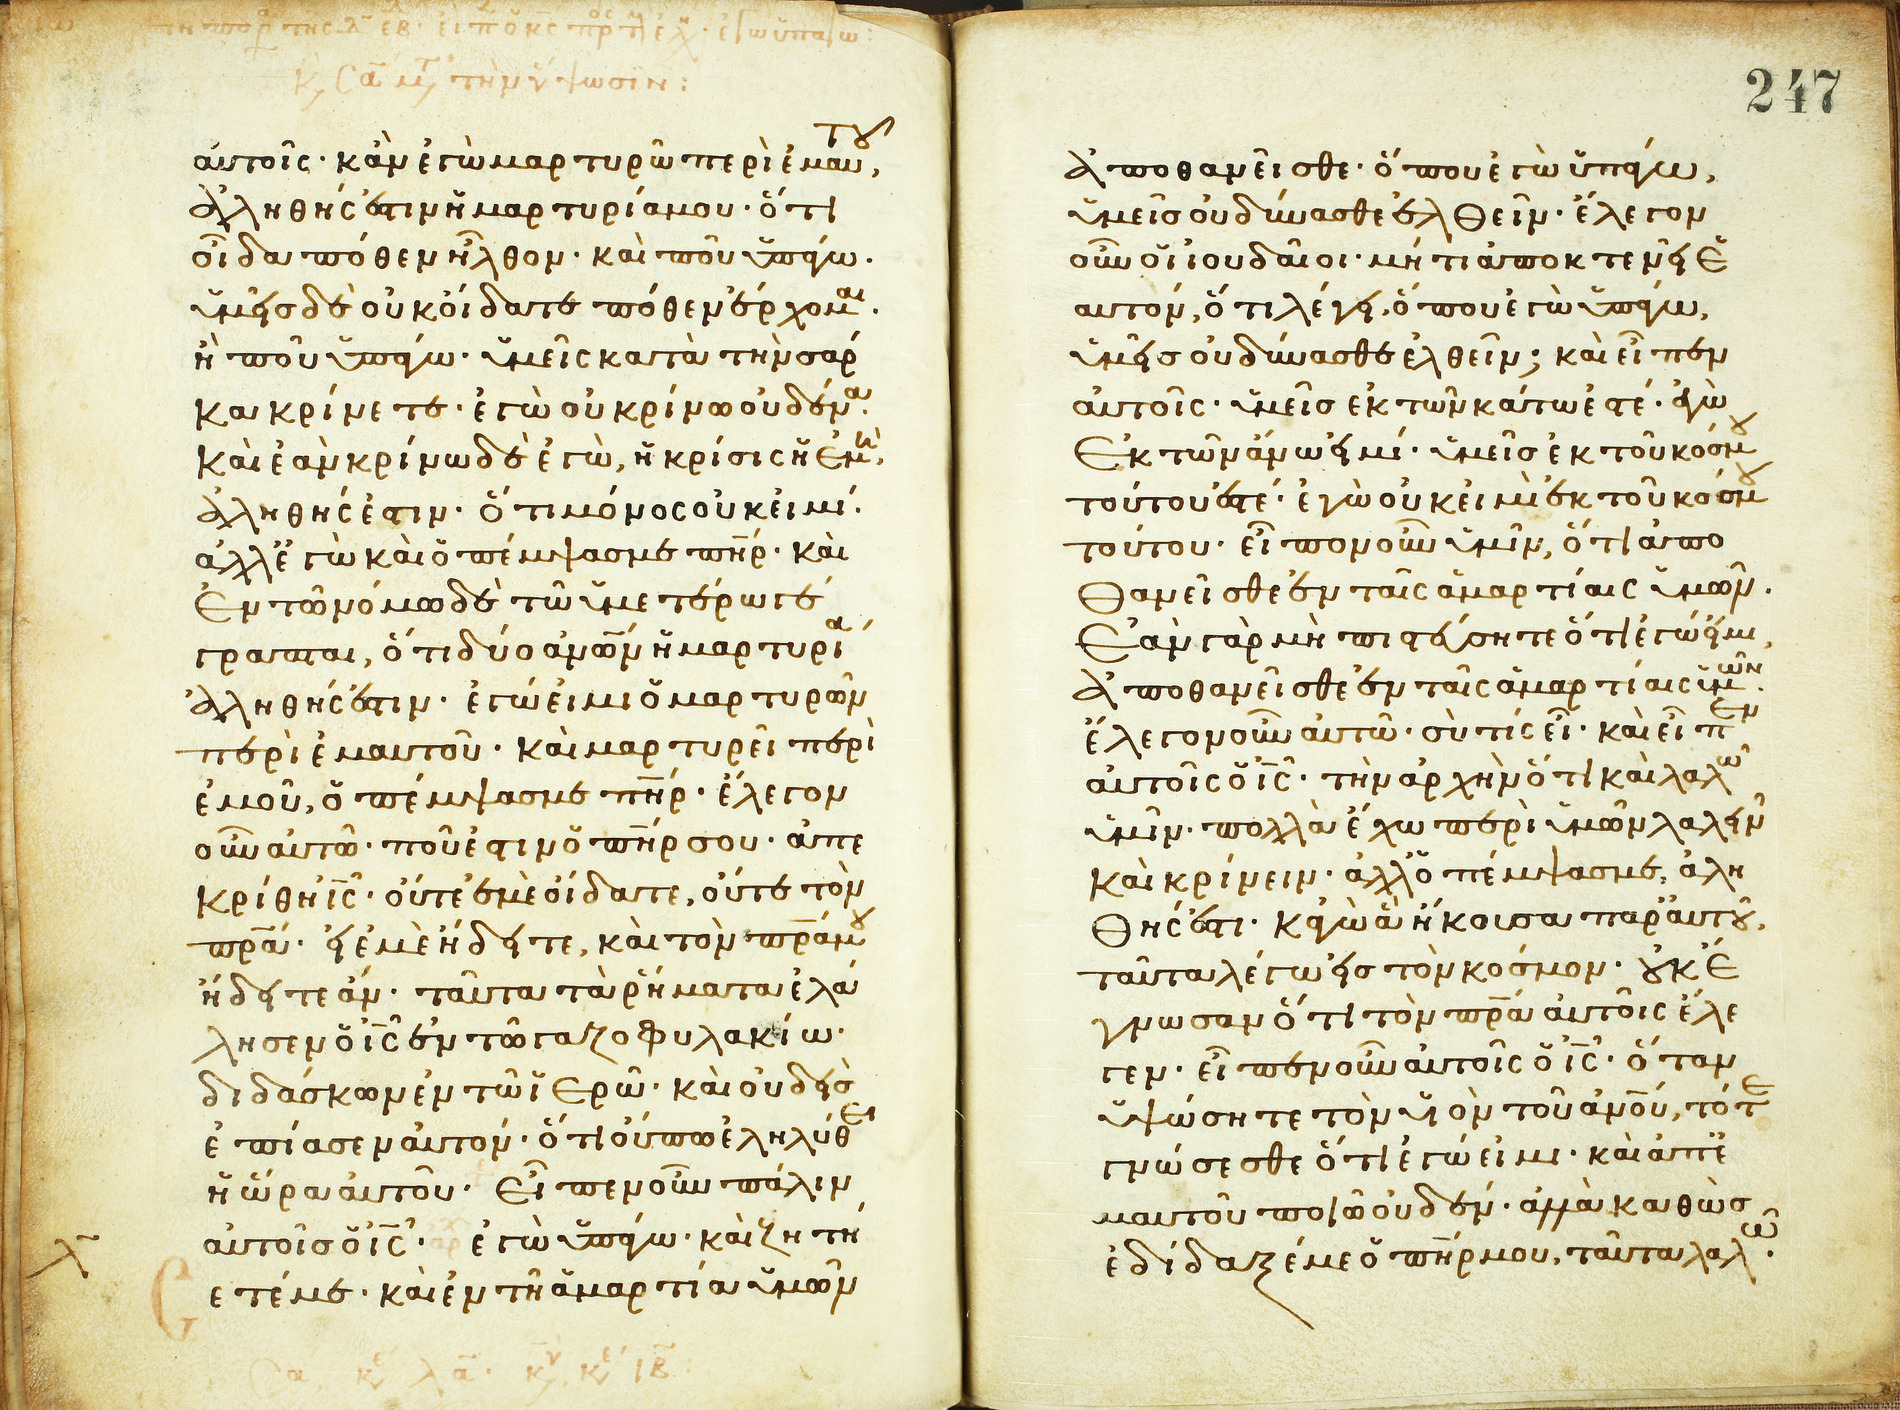 αὐτοῖς· κἂν ἐγὼ μαρτυρῶ περὶ ἐμαυτου,
ἀληθής ἐστιν ἡ μαρτυρία μου· ὅτι
οἶδα πόθεν ἦλθον· καὶ ποῦ ὑπάγω.
ὑμεῖς δὲ οὐκ οἴδατε πόθεν ἔρχομαι.
ἢ ποῦ ὑπάγω· ὑμεῖς κατὰ τὴν σάρ
κα κρίνετε· ἐγὼ οὐ κρίνω οὐδένα.
Καὶ ἐὰν κρίνω δὲ ἐγὼ, ἡ κρίσις ἡ ἐμὴ,
ἀληθής ἐστιν· ὅτι μόνος οὐκ εἰμί.
ἀλλ' ἐγὼ καὶ ὁ πέμψας με πηρ· καὶ
Ἐν τῶ νόμω δὲ τῶ ὑμετέρω γέ
γραπται, ὅτι δύο ἀνων ἡ μαρτυρία
ἀληθής ἐστιν· ἐγώ εἰμι ὁ μαρτυρῶν
περὶ ἐμαυτοῦ· καὶ μαρτυρεῖ περὶ
ἐμοῦ, ὁ πέμψας με πηρ· ἔλεγον
οὖν αὐτῶ· ποῦ ἐστιν ὁ πηρ σου· ἀπε
κρίθη ις· οὔτε ἐμὲ οἴδατε, οὔτε τὸν
πρα μου· εἰ ἐμὲ ἤδειτε, καὶ τὸν πρα μου
ἤδειτε ἄν· ταῦτα τὰ ῥήματα ἐλά
λησεν ὁ ις ἐν τῶ γαζοφυλακίω·
διδάσκων ἐν τῶ ἱερῶ· καὶ οὐδεὶς
ἐπίασεν αὐτον· ὅτι οὔπω ἐληλύθει
ἡ ὥρα αὐτοῦ· Εἶπεν οὖν πάλιν
αὐτοῖς ὁ ις· ἐγὼ ὑπάγω· καὶ ζητή
ετέ με· καὶ ἐν τῆ ἁμαρτία ὑμῶν
247
ἀποθανεῖσθε· ὅπου ἐγὼ ὑπάγω,
ὑμεῖς οὐ δύνασθε ἐλθεῖν· ἔλεγον
οὖν οἱ ιουδαῖοι· μήτι ἀποκτενεῖ ἑ
αυτόν, ὅτι λέγει, ὅπου ἐγὼ ὑπάγω,
ὑμεῖς οὐ δύνασθε ἐλθεῖν; καὶ εἶπεν
αὐτοῖς· ὑμεῖς ἐκ τῶν κάτω ἐστέ· ἐγὼ
Ἐκ τῶν ἄνω εἰμί· ὑμεῖς ἐκ τοῦ κόσμου
τούτου ἐστέ· ἐγὼ οὐκ εἰμὶ ἐκ τοῦ κόσμου
τούτου· εἶπον οὖν ὑμῖν, ὅτι ἀπο
θανεῖσθε ἐν ταῖς ἁμαρτίαις ὑμῶν.
Ἐὰν γὰρ μὴ πιστεύσητε ὅτι ἐγώ εἰμι,
ἀποθανεῖσθε ἐν ταῖς ἁμαρτίαις ὑμῶν.
ἔλεγον οὖν αὐτῶ· σὺ τίς εἶ· καὶ εἶπεν
αὐτοῖς ὁ ις· τὴν ἀρχὴν ὅτι καὶ λαλῶ
ὑμῖν· πολλὰ ἔχω περὶ ὑμῶν λαλεῖν
καὶ κρίνειν· ἀλλ' ὁ πέμψας με, ἀλη
θής ἐστι· κἀγὼ ἃ ἤκουσα παρ' αὐτοῦ,
ταῦτα λέγω εἰς τὸν κόσμον· οὐκ ἔ
γνωσαν ὅτι τὸν πρα αὐτοῖς ἔλε
γεν· εἶπεν οὖν αὐτοῖς ὁ ις· ὅταν
ὑψώσητε τὸν υἱὸν τοῦ ἀνου, τότε
γνώσεσθε ὅτι ἐγώ εἰμι· καὶ ἀπ' ἐ
μαυτοῦ ποιῶ οὐδέν· ἀλλὰ καθὼς
ἐδίδαξέ με ὁ πηρ μου, ταῦτα λαλῶ.